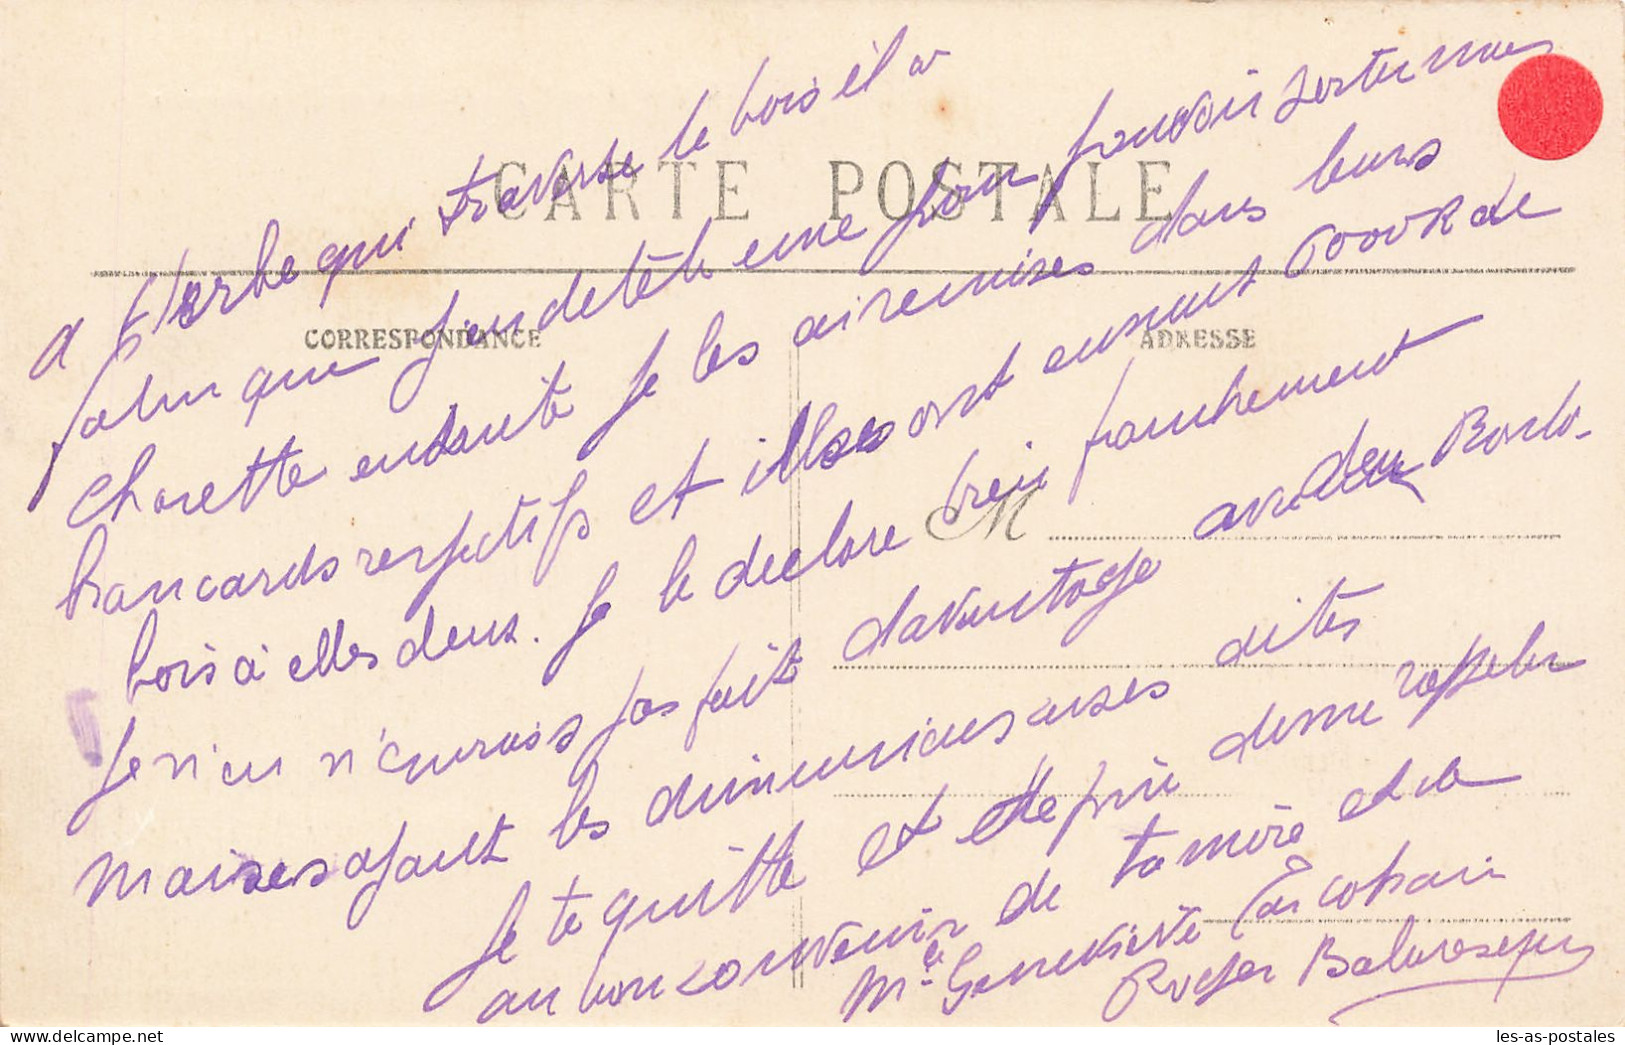 CARTE POSTALE
CORRESPONDANCE
ADRESSE
M
a Herbe qui traverse le bois il a
falu que j'en detèle une pour pouvoir sortir ma
charette ensuite je les ai remises dans leurs
brancards respectifs et illes ont emmené 6000K de
bois à elles deux. Je le declare bien franchement
je n'en n'aurais pas fait davantage avec deux
mais ayant les
Je te quitte et te prie de me rappeler
au bon souvenir de ta mère et de
Me Geneviève
Roger
les-as-postales.com